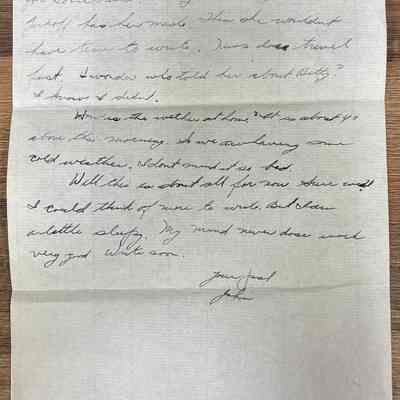 has been made. Then she wouldn't
have time to write. News does travel
fast. I wonder who told her about Betty?
I know I didn't.
How is the weather at home? It is about 4°
above this morning. So we are having some
cold weather. I don't mind it so bad.
Well this is about all for now. Sure wish
I could think of more to write. But I am
a little sleepy. My mind never does work
very good. Write soon.
Your pal
John